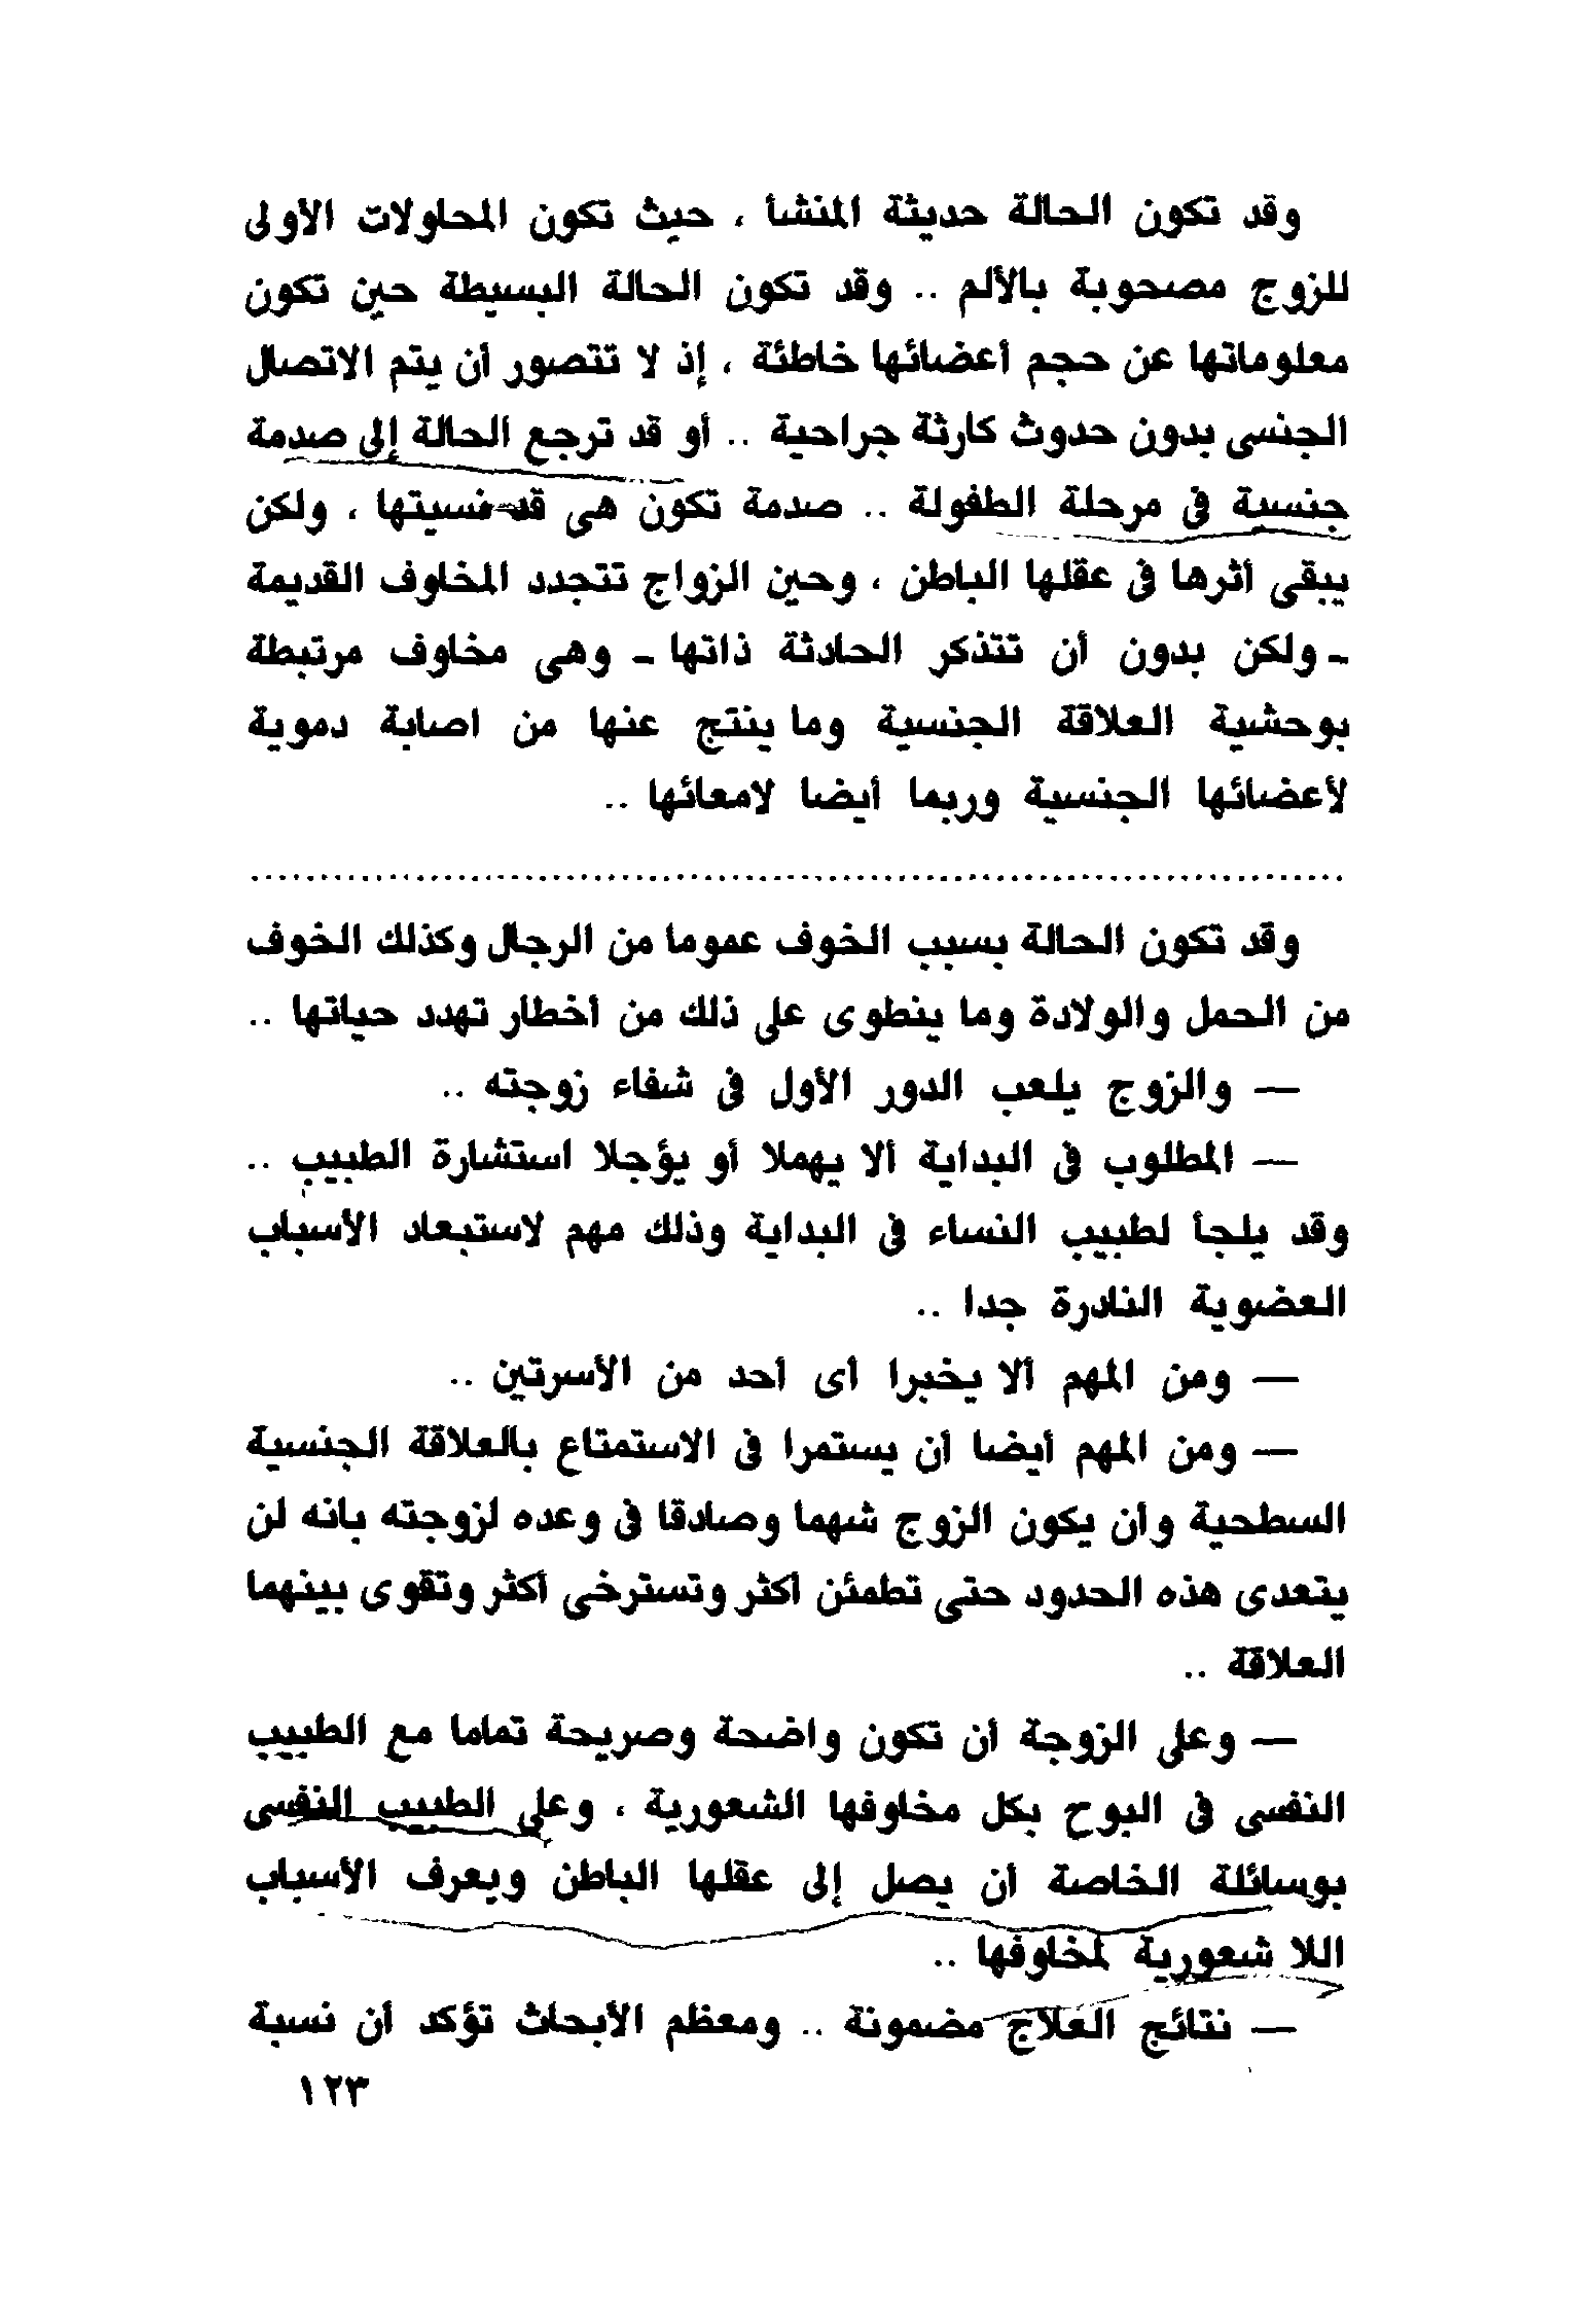 وقد تكون الحالة حديثة المنشأ ، حيث تكون المحاولات الأولى
للزوج مصحوبة بالألم .. وقد تكون الحالة البسيطة حين تكون
معلوماتها عن حجم أعضائها خاطئة ، إذ لا تتصور أن يتم الاتصال
الجنسى بدون حدوث كارثة جراحية .. أو قد ترجع الحالة إلى صدمة
جنسية فى مرحلة الطفولة .. صدمة تكون هى قد نسيتها ، ولكن
يبقى أثرها فى عقلها الباطن ، وحين الزواج تتجدد المخاوف القديمة
- ولكن بدون أن تتذكر الحادثة ذاتها - وهى مخاوف مرتبطة
بوحشية العلاقة الجنسية وما ينتج عنها من اصابة دموية
لأعضائها الجنسية وربما أيضا لامعائها ..
................................................................................
وقد تكون الحالة بسبب الخوف عموما من الرجال وكذلك الخوف
من الحمل والولادة وما ينطوى على ذلك من أخطار تهدد حياتها ..
— والزوج يلعب الدور الأول فى شفاء زوجته ..
— المطلوب فى البداية ألا يهملا أو يؤجلا استشارة الطبيب ..
وقد يلجأ لطبيب النساء فى البداية وذلك مهم لاستبعاد الأسباب
العضوية النادرة جدا ..
— ومن المهم ألا يخبرا أى أحد من الأسرتين ..
— ومن المهم أيضا أن يستمرا فى الاستمتاع بالعلاقة الجنسية
السطحية وأن يكون الزوج شهما وصادقا فى وعده لزوجته بانه لن
يتعدى هذه الحدود حتى تطمئن أكثر وتسترخى أكثر وتقوى بينهما
العلاقة ..
— وعلى الزوجة أن تكون واضحة وصريحة تماما مع الطبيب
النفسى فى البوح بكل مخاوفها الشعورية ، وعلى الطبيب النفسى
بوسائلة الخاصة أن يصل إلى عقلها الباطن ويعرف الأسباب
اللا شعورية لمخاوفها ..
— نتائج العلاج مضمونة .. ومعظم الأبحاث تؤكد أن نسبة
١٢٣